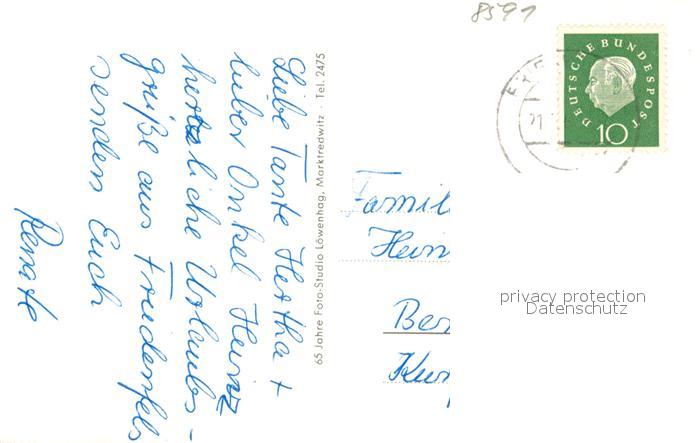 8591
DEUTSCHE BUNDESPOST
10
Liebe Tante Hertha +
lieber Onkel Heinz
herzliche Urlaubs-
grüße aus Friedenfels
senden Euch
Renate
65 Jahre Foto-Studio Löwenhag, Marktredwitz · Tel. 2475
Famil
Hein
Ber
Kur
privacy protection
Datenschutz